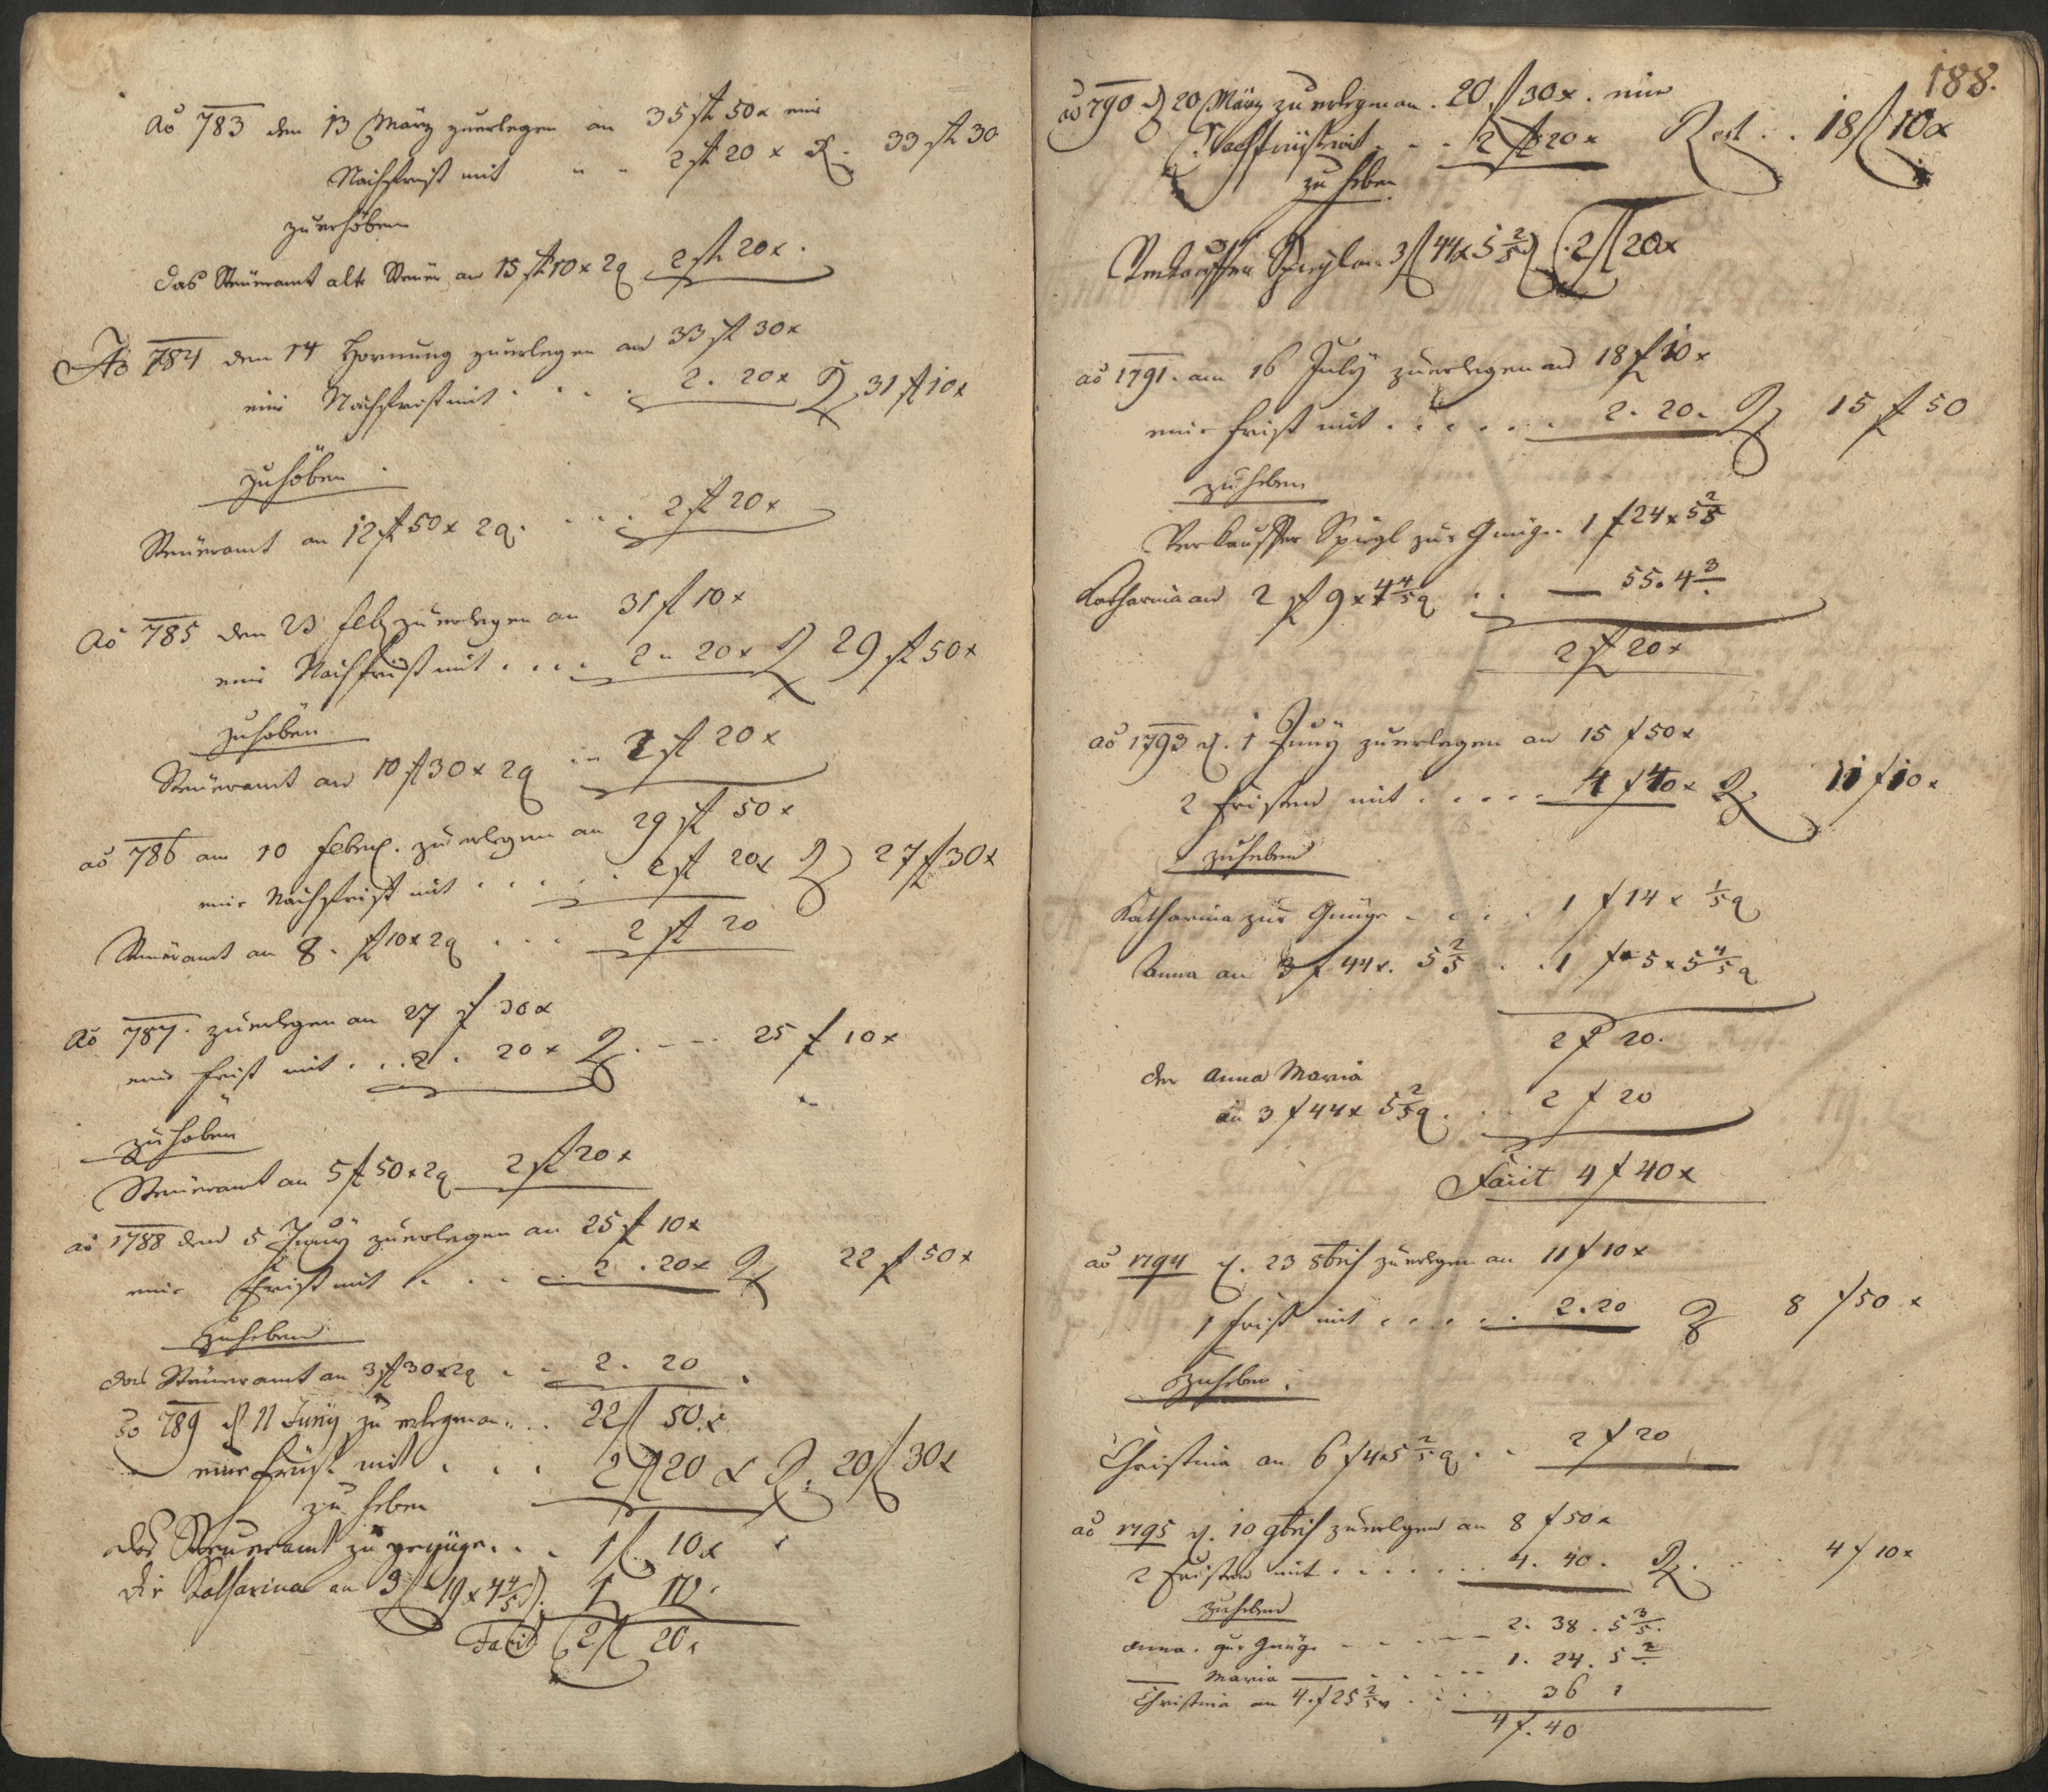 Ao 783 den 13 März zuerlegen an 35 fl 50 x eine
Nachfrist mit " " 2 fl 20 x R. 33 fl 30
zuerhöben
das Steueramt alte Steuer an 15 fl 10 x 2 q 2 fl 20 x.
Ao 784 den 14 Hornung zuerlegen an 33 fl 30 x
eine Nachfrist mit . . . . 2. 20 x R 31 fl 10 x
zuhöben
Steueramt an 12 fl 50 x 2 q. . . . 2 fl 20 x
Ao 785 den 23 feb zuerlegen an 31 fl 10 x
eine Nachfrist mit . . . . 2 " 20 x R 29 fl 50 x
zuhöben
Steueramt an 10 fl 30 x 2 q . . . 2 fl 20 x
ao 786 am 10 febr. zuerlegen an 29 fl 50 x
eine Nachfrist mit . . . . . 2 fl 20 x R 27 fl 30 x
Steueramt an 8. fl 10 x 2 q . . . 2 fl 20
Ao 787. zuerlegen an 27 f 30 x
eine frist mit . . . 2 . 20 x R. - - - 25 f 10 x
zuhöben
Steueramt an 5 fl 50 x 2 q 2 fl 20 x
ao 1788 den 5 Juny zuerlegen an 25 fl 10 x
eine frist mit . . . . . 2 . 20 x R 22 f 50 x
zuheben
das Steueramt an 3 fl 30 x 2 q . . 2. 20
ao 789 d 11 Juny zu erlegen an . . . 22 f 50 x
eine früst mit . . . 2 f 20 x R. 20 f 30 x
zu heben
das Steueramt zu genüge . . . 1 f. 10 x
die Katharina an 3 f 19 x 4 4/5 d. 1 10.
Facit 2 f 20 x
188.
ao 790 d 20 März zu erlegen an . 20 f 30 x . eine
Nachfrüst mit . - - 2 f 20 x Rest . . 18 f 10 x
zu heben
Verkauffer Spiegl an 3 f 44 x 5 2/5 d 2 f 20 x
ao 1791. am 16 July zuerlegen an 18 f 10 x
eine frist mit . . . . . . 2. 20. R 15 f 50
zuheben
Verkauffer Spiegl zur Gnüge . 1 f 24 x 5 2/5
Katharina an 2 f 9 x 4 4/5 q . . — 55. 4 3/.
2 f 20 x
ao 1793 d. 1 Juny zuerlegen an 15 f 50 x
2 fristen mit . . . . . 4 f 40 x R. 11 f 10 x
zuheben
Katharina zur Gnüge - . . . 1 f 14 x 1/5 q
Anna an 3 f 44 x. 5 2/5 . . . 1 f 5 x 5 4/5 q
2 f 20.
der Anna Maria
an 3 f 44 x 5 2/5 q . . . 2 f 20
Facit 4 f 40 x
ao 1794 d. 23 8bris zuerlegen an 11 f 10 x
1 frist mit . . . . . 2. 20 R 8 f 50 x
zuheben.
Christina an 6 f 4 x 5 2/5 q . . 2 f 20
ao 1795 d. 10 9bris zuerlegen an 8 f 50 x
2 fristen mit . . . . . . 4. 40. R. . . 4 f 10 x
zuheben
Anna. zur Gnüge - - - - - 2. 38. 5 3/5.
— Maria — . . . . . 1. 24. 5 2/.
Christina an 4. f 25 2/5 x . . . 36 1
4 f. 40